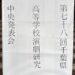 第七十八回千葉県
高等学校演劇研究
中央発表会